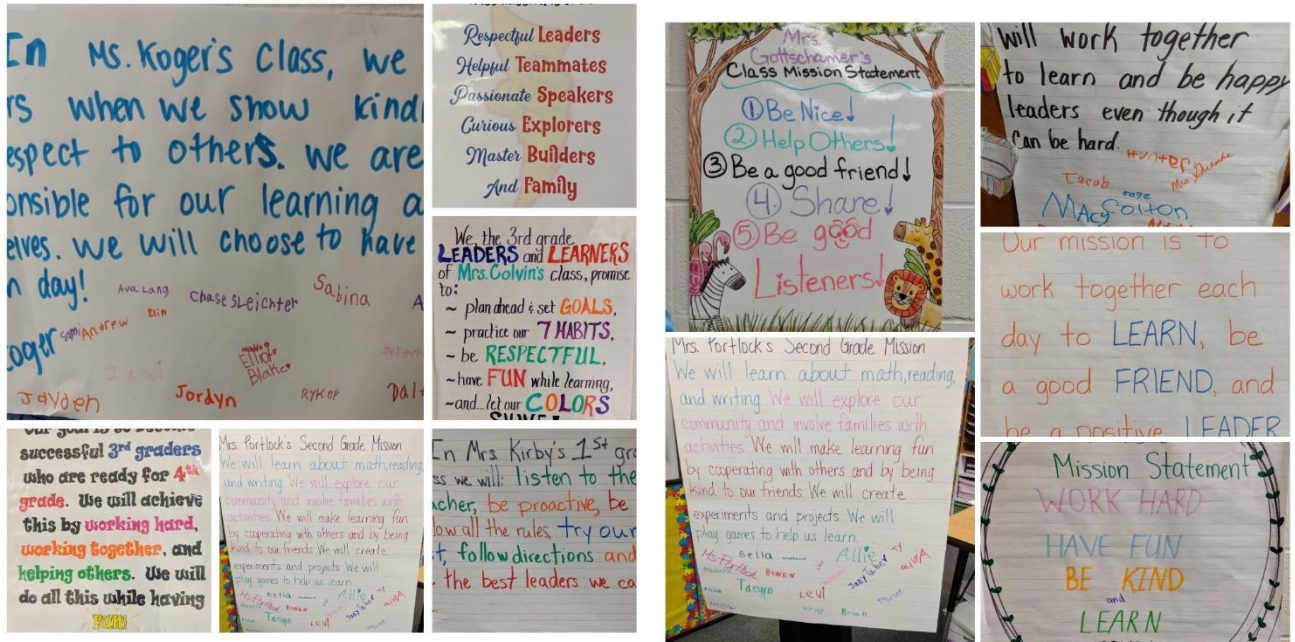 In Ms. Koger's Class, we
rs when we show kind
espect to others. we are
onsible for our learning a
elves. we will choose to have
n day!
Ava Lang
Chase Sleichter
Sabina
A
Sami Andrew
Elin
Koger
Elliot
Blake
Izzi
Jayden
Jordyn
Ryker
Dal
Respectful Leaders
Helpful Teammates
Passionate Speakers
Curious Explorers
Master Builders
And Family
We, the 3rd grade
LEADERS and LEARNERS
of Mrs. Colvin's class, promise
to:
~ plan ahead & set GOALS,
~ practice our 7 HABITS,
~ be RESPECTFUL,
~ have FUN while learning,
~ and... let our COLORS
our goal is to become
successful 3rd graders
who are ready for 4th
grade. We will achieve
this by working hard,
working together, and
helping others. We will
do all this while having
FUN!
Mrs. Portlock's Second Grade Mission
We will learn about math, reading,
and writing We will explore our
community and involve families with
activities. We will make learning fun
by cooperating with others and by being
kind to our friends We will create
experiments and projects We will
play games to help us learn.
Mrs. Portlock
Bowen
Bella
Allie
Taegyn
Levi
In Mrs Kirby's 1st gra
ss we will: listen to the
acher, be proactive, be
low all the rules, try our
t, follow directions and
the best leaders we ca
Mrs.
Gottschamer's
Class Mission Statement
① Be Nice!
② Help Others!
③ Be a good friend!
④. Share!
⑤ Be good
Listeners!
Mrs. Portlock's Second Grade Mission
We will learn about math, reading,
and writing We will explore our
community and involve families with
activities. We will make learning fun
by cooperating with others and by being
kind to our friends We will create
experiments and projects We will
play games to help us learn.
Mrs. Portlock
Bowen
Bella
Allie
Taegyn
Levi
Brian
will work together
to learn and be happy
leaders even though it
can be hard.
Hunter
Jacob
Macy
Colton
Our mission is to
work together each
day to LEARN, be
a good FRIEND, and
be a positive LEADER
Mission Statement
WORK HARD
HAVE FUN
BE KIND
and
LEARN